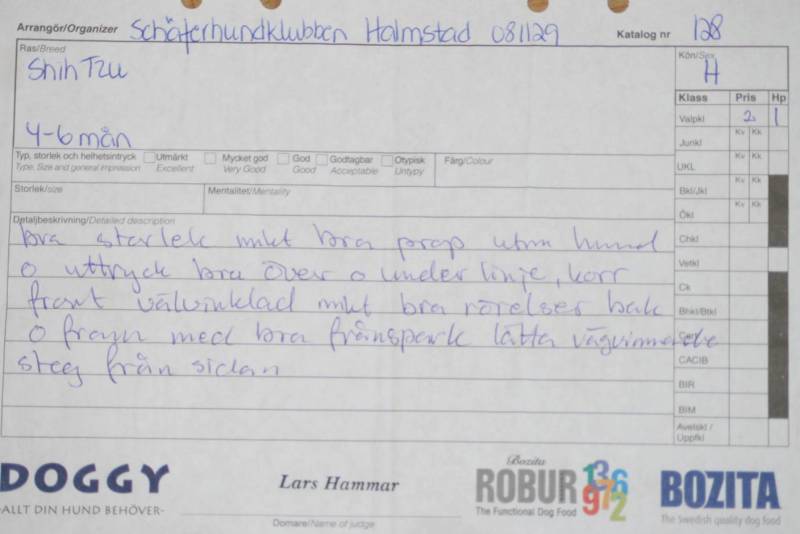 Arrangör/Organizer Schäferhundklubben Halmstad 081129 Katalog nr 128
Ras/Breed
Shih Tzu
4-6 mån
Kön/Sex
H
Klass Pris Hp
Valpkl 2 1
Junkl Kv Kk
UKL Kv Kk
Bkl/Jkl Kv Kk
Ökl Kv Kk
Chkl
Vetkl
Ck
Bhkl/Btkl
CACIB
BIR
BIM
Avelskl / Uppfkl
Typ, storlek och helhetsintryck Utmärkt Mycket god God Godtagbar Otypisk Färg/Colour
Type, Size and general impression Excellent Very Good Good Acceptable Untypy
Storlek/size Mentalitet/Mentality
Detaljbeskrivning/Detailed description
bra storlek mkt bra prop utm huvud
o uttryck bra över o under linje, korr
front välvinklad mkt bra rörelser bak
o fram med bra frånspark lätta vägvinnande
steg från sidan
DOGGY
-ALLT DIN HUND BEHÖVER-
Lars Hammar
Domare/Name of judge
Bozita
ROBUR
The Functional Dog Food
BOZITA
The Swedish quality dog food